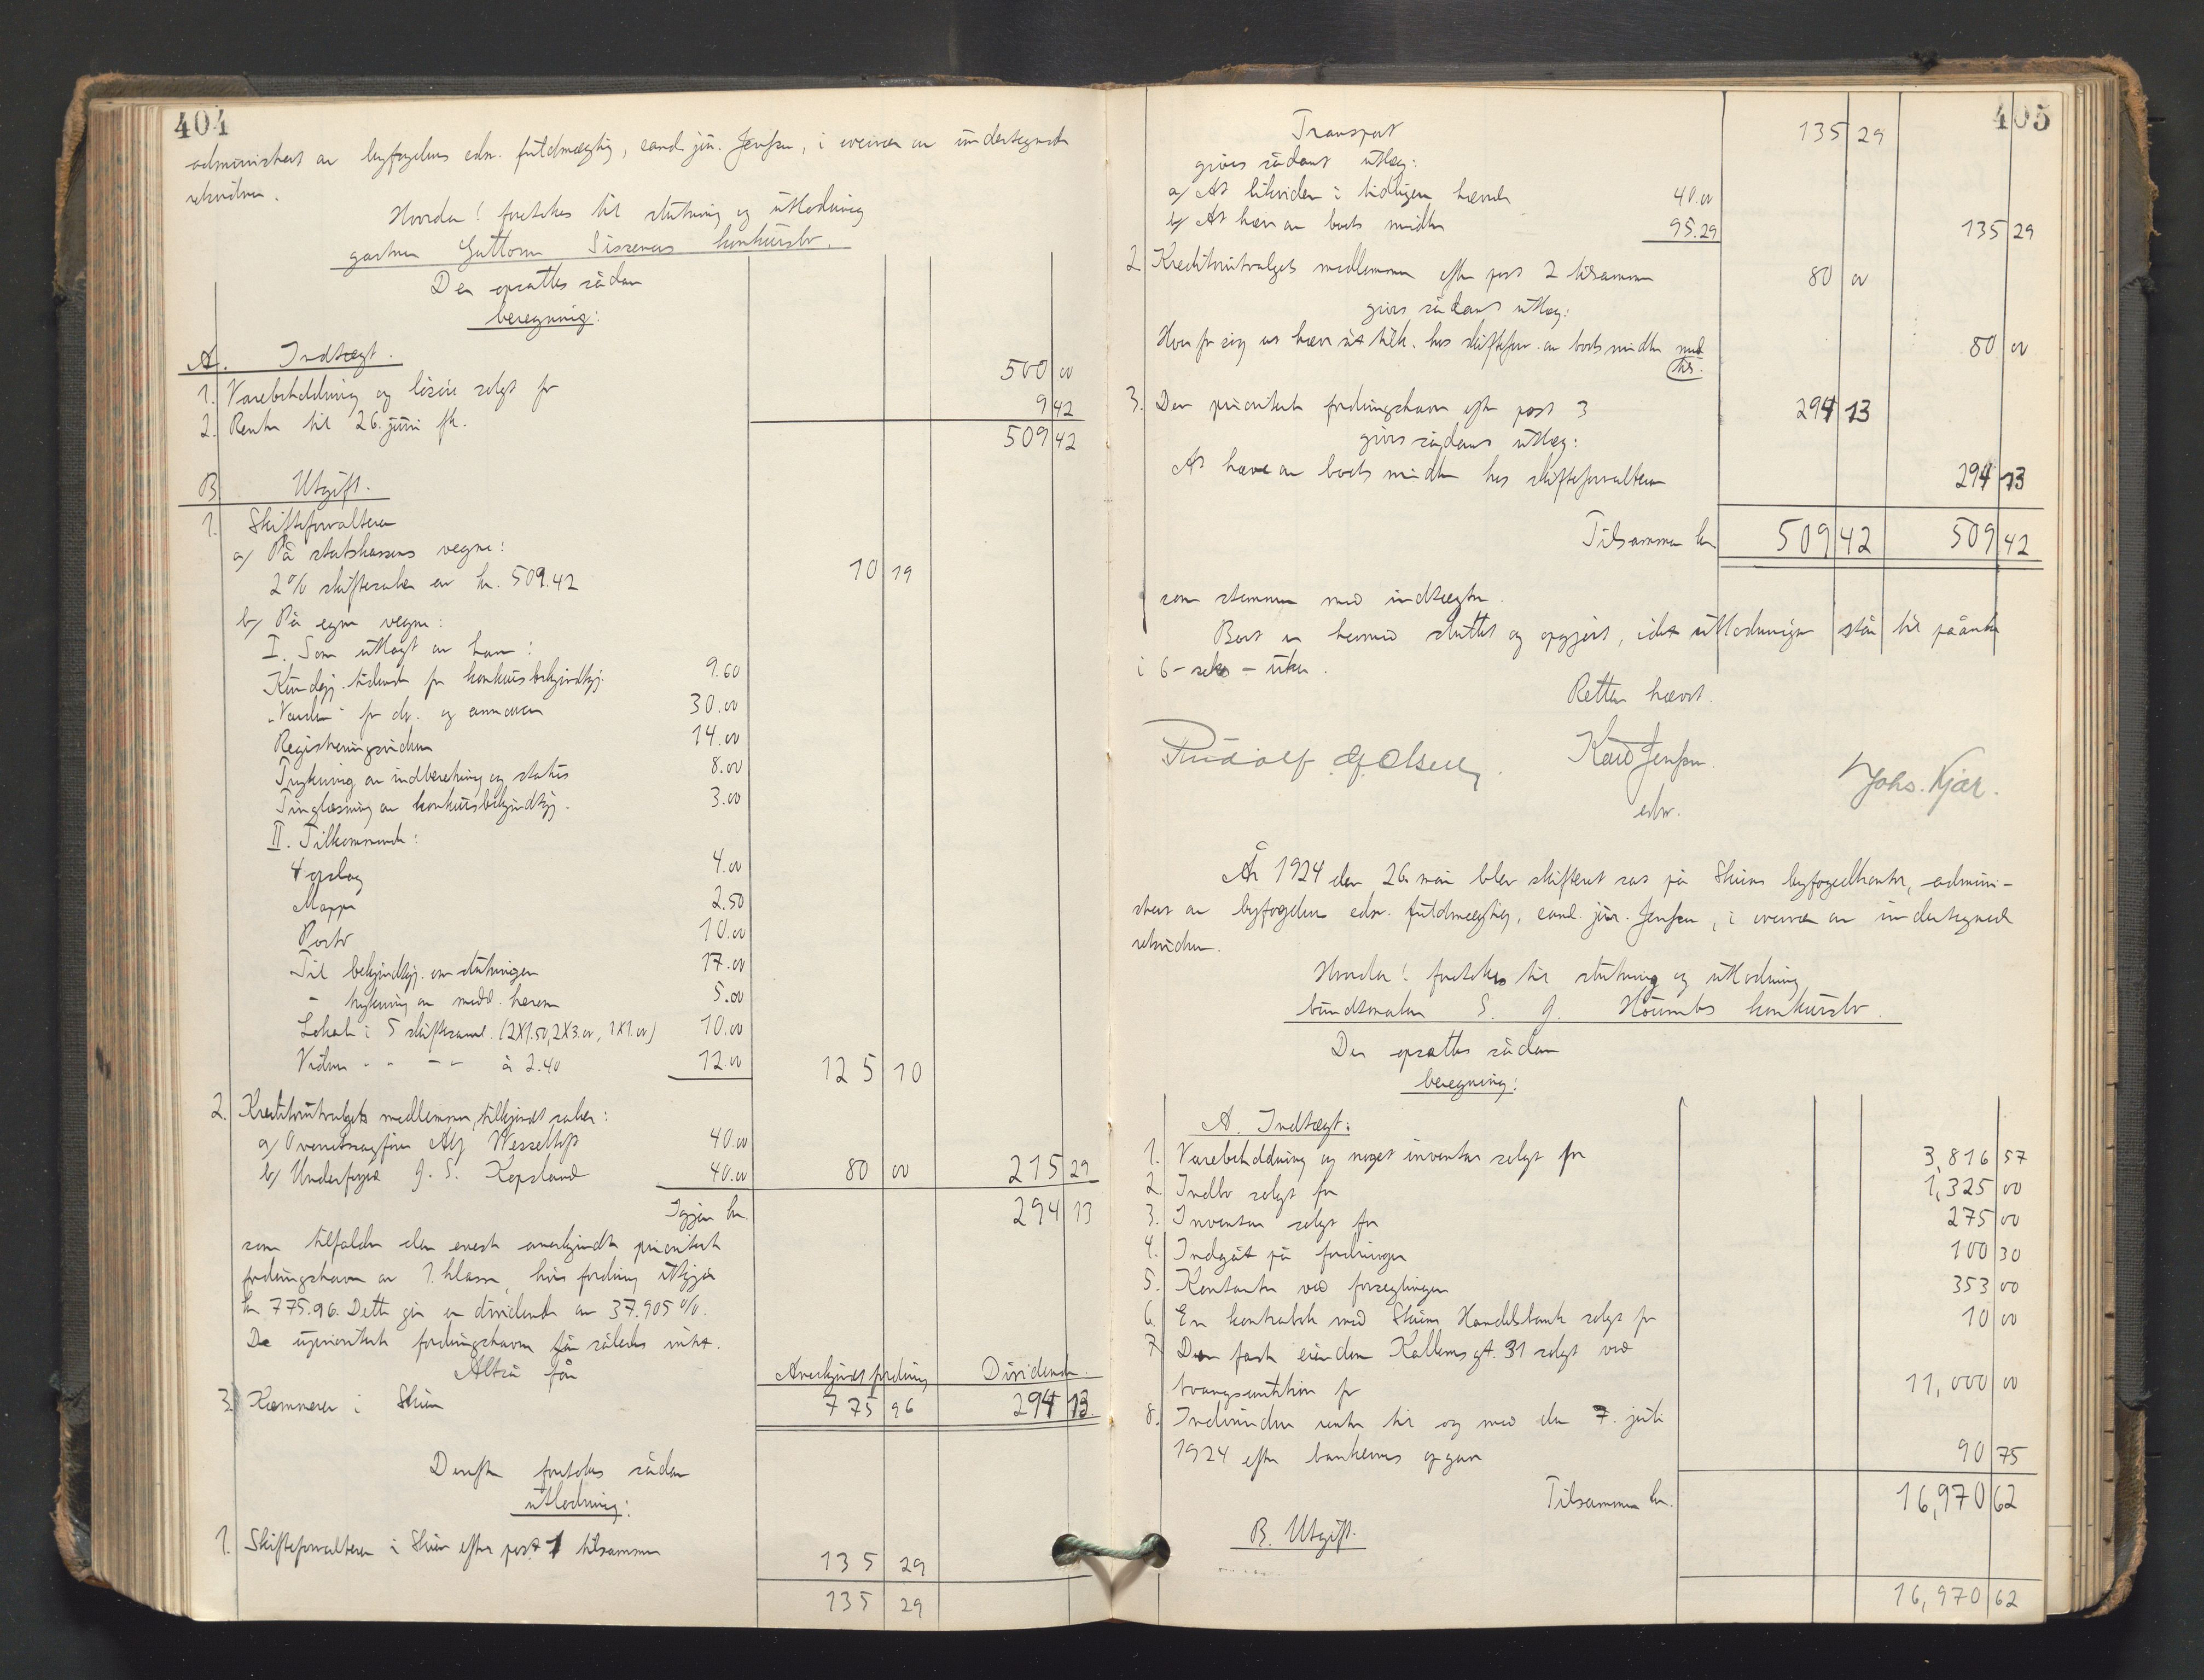 404
administrert av byfogdens edsv. fuldmægtig, cand. jur. Jensen, i overvær av undertegnede
retsvidner.
Hvorda! foretokes til slutning og utlodning
gartner Guttorm Sisseners konkursbo.
Der opsattes sådan
beregning:
A. Indtægt.
1. Varebeholdning og løsøre solgt for 500 00
2. Renter til 26. juni ft. 9 42
509 42
B. Utgift.
1. Skifteforvalteren
a/ På statskassens vegne:
2% skiftesalær av kr. 509.42 10 19
b/ På egne vegne:
I. Som utlagt av ham:
Kundgj. tidende for konkursbekjendtgj. 9.60
"Varden" for do. og annoncer 30.00
Registreringsvidner 14.00
Trykning av indberetning og status 8.00
Tinglæsning av konkursbekjendtgj. 3.00
II. Tilkommende:
4 opslag 4.00
Mappe 2.50
Porto 10.00
Til bekjendtgj. om slutningen 17.00
- trykning av medd. herom 5.00
Lokale i 5 skiftesaml. (2X1.50, 2X3.00, 1X1.00) 10.00
Vidner - - - - à 2.40 12.00 125 10
2. Kreditorutvalgets medlemmer, tilkjendt salær:
a/ Overretssagfører Alf Wesseltoft 40.00
b/ Underfoged J. S. Kopsland 40.00 80 00 215 29
Igjen kr. 294 13
som tilfalder den eneste anerkjendte prioriterte
fordringshaver av 1. klasse, hvis fordring utgjør
kr. 775.96. Dette gir en dividende av 37.905 %.
De uprioriterte fordringshavere får således intet.
Altså får Anerkjendt fordring Dividende.
3. Kæmneren i Skien 775 96 294 13
Derefter foretokes sådan
utlodning:
1. Skifteforvalteren i Skien efter post 1 tilsammen 135 29
135 29
405
Transport 135 29
gives sådant utlæg:
a/ At likvidere i tidligere hævede 40.00
b/ At hæve av boets midler 95.29 135 29
2. Kreditorutvalgets medlemmer efter post 2 tilsammen 80 00
gives sådant utlæg:
Hver for sig at hæve sit tilk. hos skifteforv. av boets midler med
tils. 80 00
3. Den prioriterte fordringshaver efter post 3 294 13
gives sådant utlæg:
At hæve av boets midler hos skifteforvalteren 294 13
Tilsammen kr. 509 42 509 42
som stemmer med indtægten.
Boet er hermed sluttet og opgjort, idet utlodningen står til påanke
i 6 - seks - uker.
Retten hævet.
Rudolf Olsen. Kåre Jensen. Johs. Kjær.
edsv.
År 1924 den 26. mai blev skifteret sat på Skiens byfogedkontor, admini-
strert av byfogdens edsv. fuldmægtig, cand. jur. Jensen, i overvær av undertegnede
retsvidner.
Hvorda! foretokes til slutning og utlodning
bundtmaker S. J. Houmbs konkursbo.
Der opsattes sådan
beregning:
A. Indtægt:
1. Varebeholdning og noget inventar solgt for 3,816 57
2. Indbo solgt for 1,325 00
3. Inventar solgt for 275 00
4. Indgåt på fordringer 100 30
5. Kontanter ved forseglingen 353 00
6. En kontrabok med Skiens Handelsbank solgt for 10 00
7. Den faste eiendom Kallemsgt. 31 solgt ved
tvangsauktion for 11,000 00
8. Indvundne renter til og med den 7. juli
1924 efter bankernes opgave 90 75
Tilsammen kr. 16,970 62
B. Utgift.
16,970 62